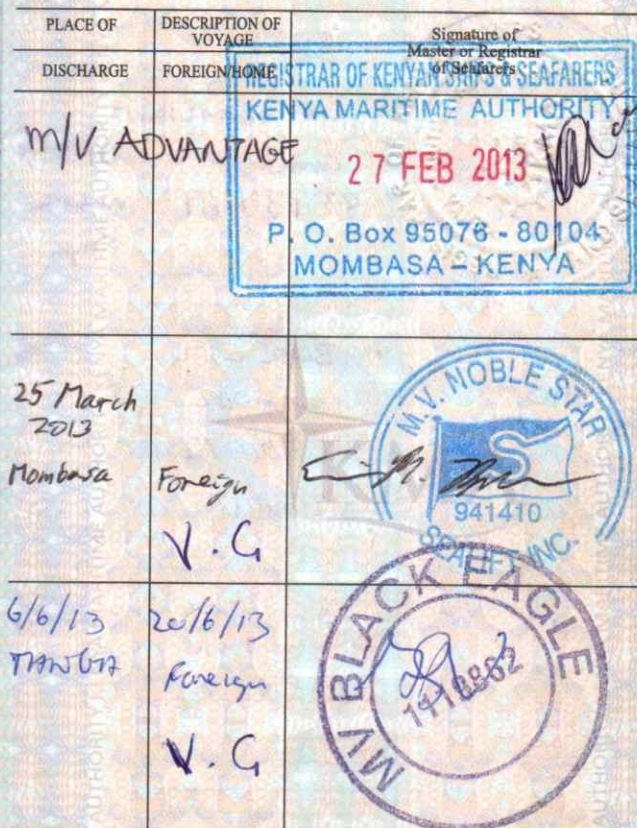 PLACE OF
DISCHARGE
DESCRIPTION OF
VOYAGE
FOREIGN/HOME
Signature of
Master or Registrar
of Seafarers
REGISTRAR OF KENYAN SHIPS & SEAFARERS
KENYA MARITIME AUTHORITY
27 FEB 2013
P. O. Box 95076 - 80104
MOMBASA – KENYA
M/V ADVANTAGE
25 March
2013
Mombasa
Foreign
V.G
M.V. NOBLE STAR
S
941410
SEALIFT INC.
6/6/13
20/6/13
Foreign
V.G
MV BLACK EAGLE